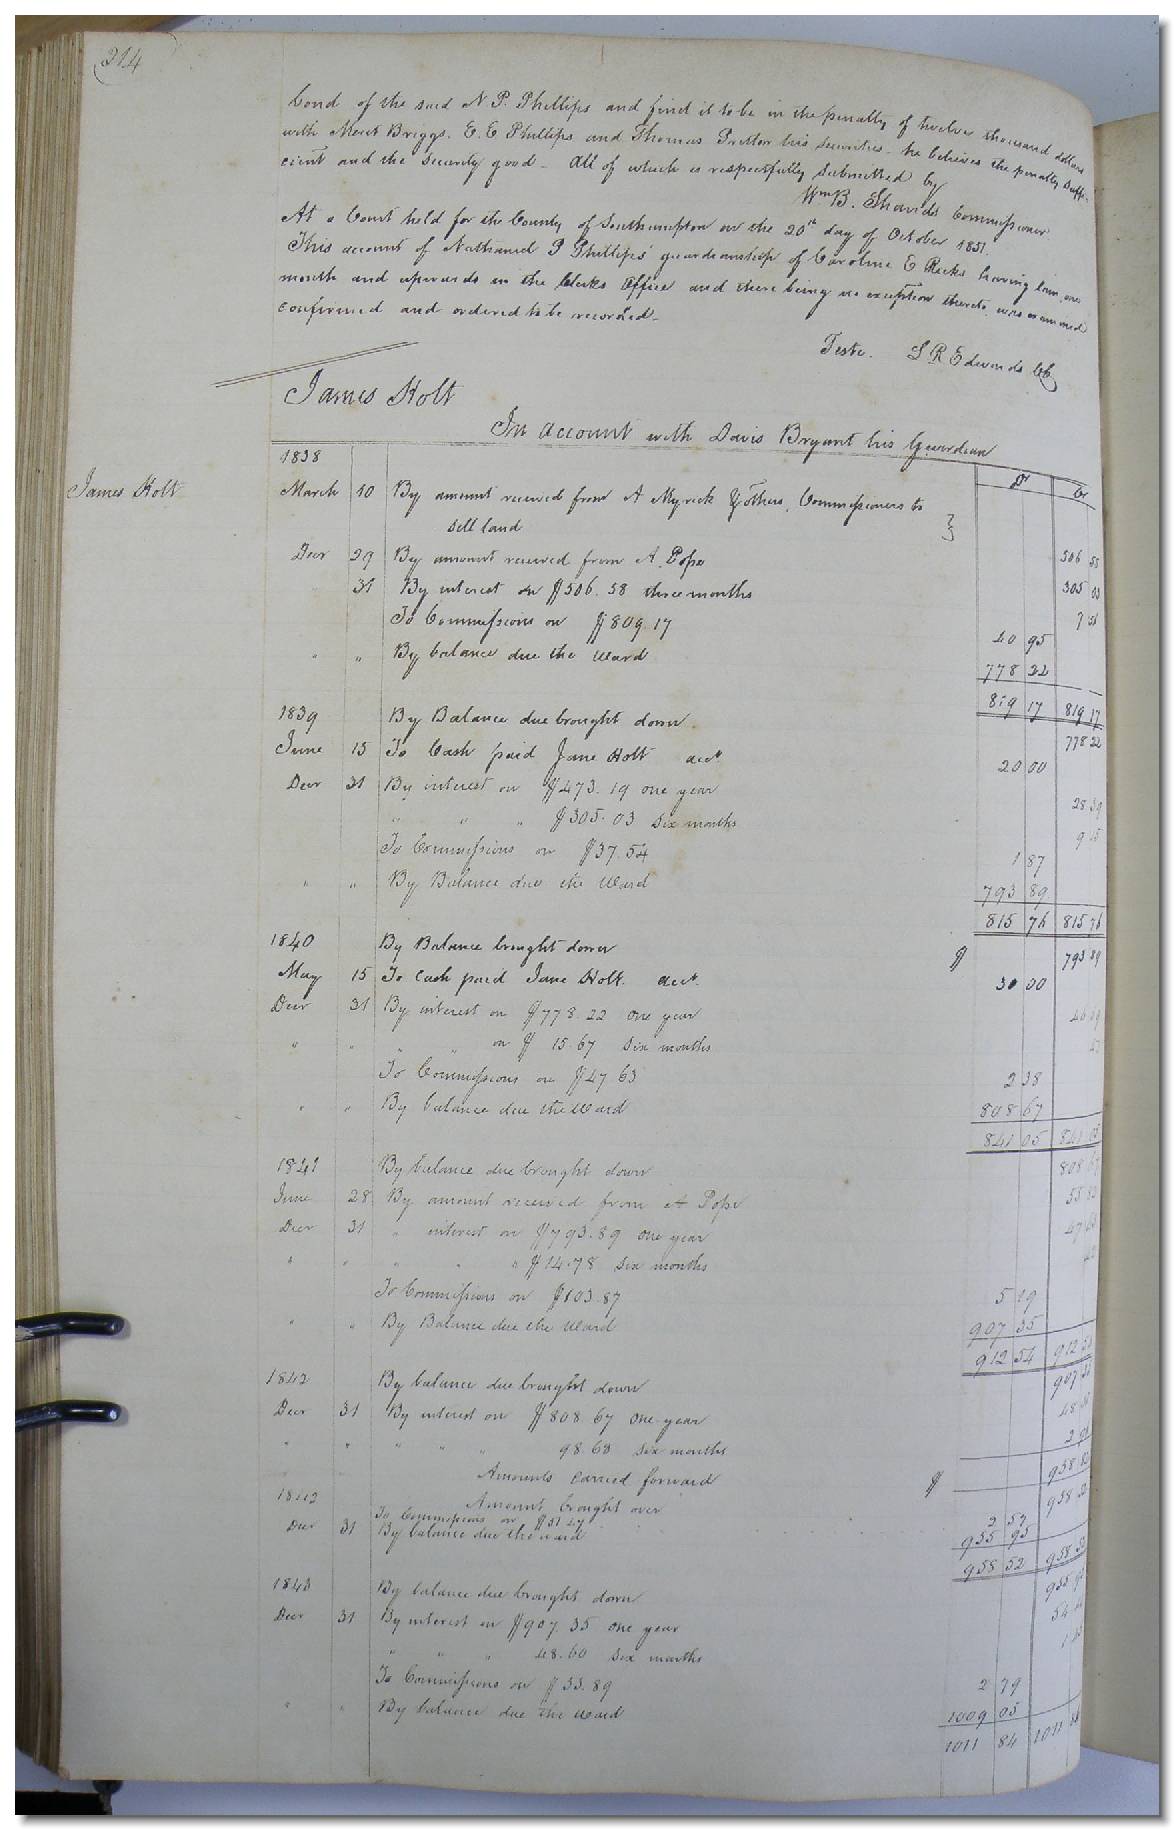 214
bond of the said N P. Phillips and find it to be in the penalty of twelve thousand dollars
with Merit Briggs. E. E Phillips and Thomas Pretlow his securities - he believes the penalty suffi-
cient and the security good - All of which is respectfully submitted by
Wm B. Shands Commissioner
At a Court held for the County of Southampton on the 20th day of October 1851.
This account of Nathaniel P Phillips' guardianship of Caroline E Ricks having lain one
month and upwards in the Clerks Office and there being no exception thereto, was examined
confirmed and ordered to be recorded -
Teste. L R Edwards CC
James Holt
In account with Davis Bryant his Guardian
1838 Dr Cr
James Holt
March 10 By amount received from A Myrick & others, Commissioners to
sell land 506 58
Decr 29 By amount received from A. Pope 305 03
31 By interest on $506.58 three months 7 56
To Commissions on $809.17 40 95
" " By balance due the ward 778 22
819 17 819 17
1839 By Balance due brought down 778 22
June 15 To Cash paid Jane Holt acct 20 00
Decr 31 By interest on $473.19 one year 28 39
" " " $305.03 six months 9 15
To Commissions on $37.54 1 87
" " By Balance due the ward 793 89
815 76 815 76
1840 By Balance brought down $ 793 89
May 15 To Cash paid Jane Holt. acct. 30 00
Decr 31 By interest on $778.22 one year
" " " on $15.67 six months 47
To Commissions on $47 63 2 38
" " By balance due the ward 808 67
841 05 841 05
1841 By balance due brought down 808 67
June 28 By amount received from A Pope 55 82
Decr 31 " interest on $793.89 one year 47 63
" " " " " $14.78 six months 42
To Commissions on $103.87 5 19
" " By Balance due the ward 907 35
912 54 912 54
1842 By balance due brought down 907 35
Decr 31 By interest on $808.67 one year 48
" " " " " 98.68 six months 2 96
Amounts carried forward $ 958 82
1842 Amount brought over 958
To Commissions on 2 57
Decr 31 By balance due the ward 955 95
958 52 958 52
1843 By balance due brought down 955
Decr 31 By interest on $907.35 one year 54
" " " 48.60 six months 1
To Commissions on $55.89 2 79
" " By balance due the ward 1009 05
1011 84 1011 84